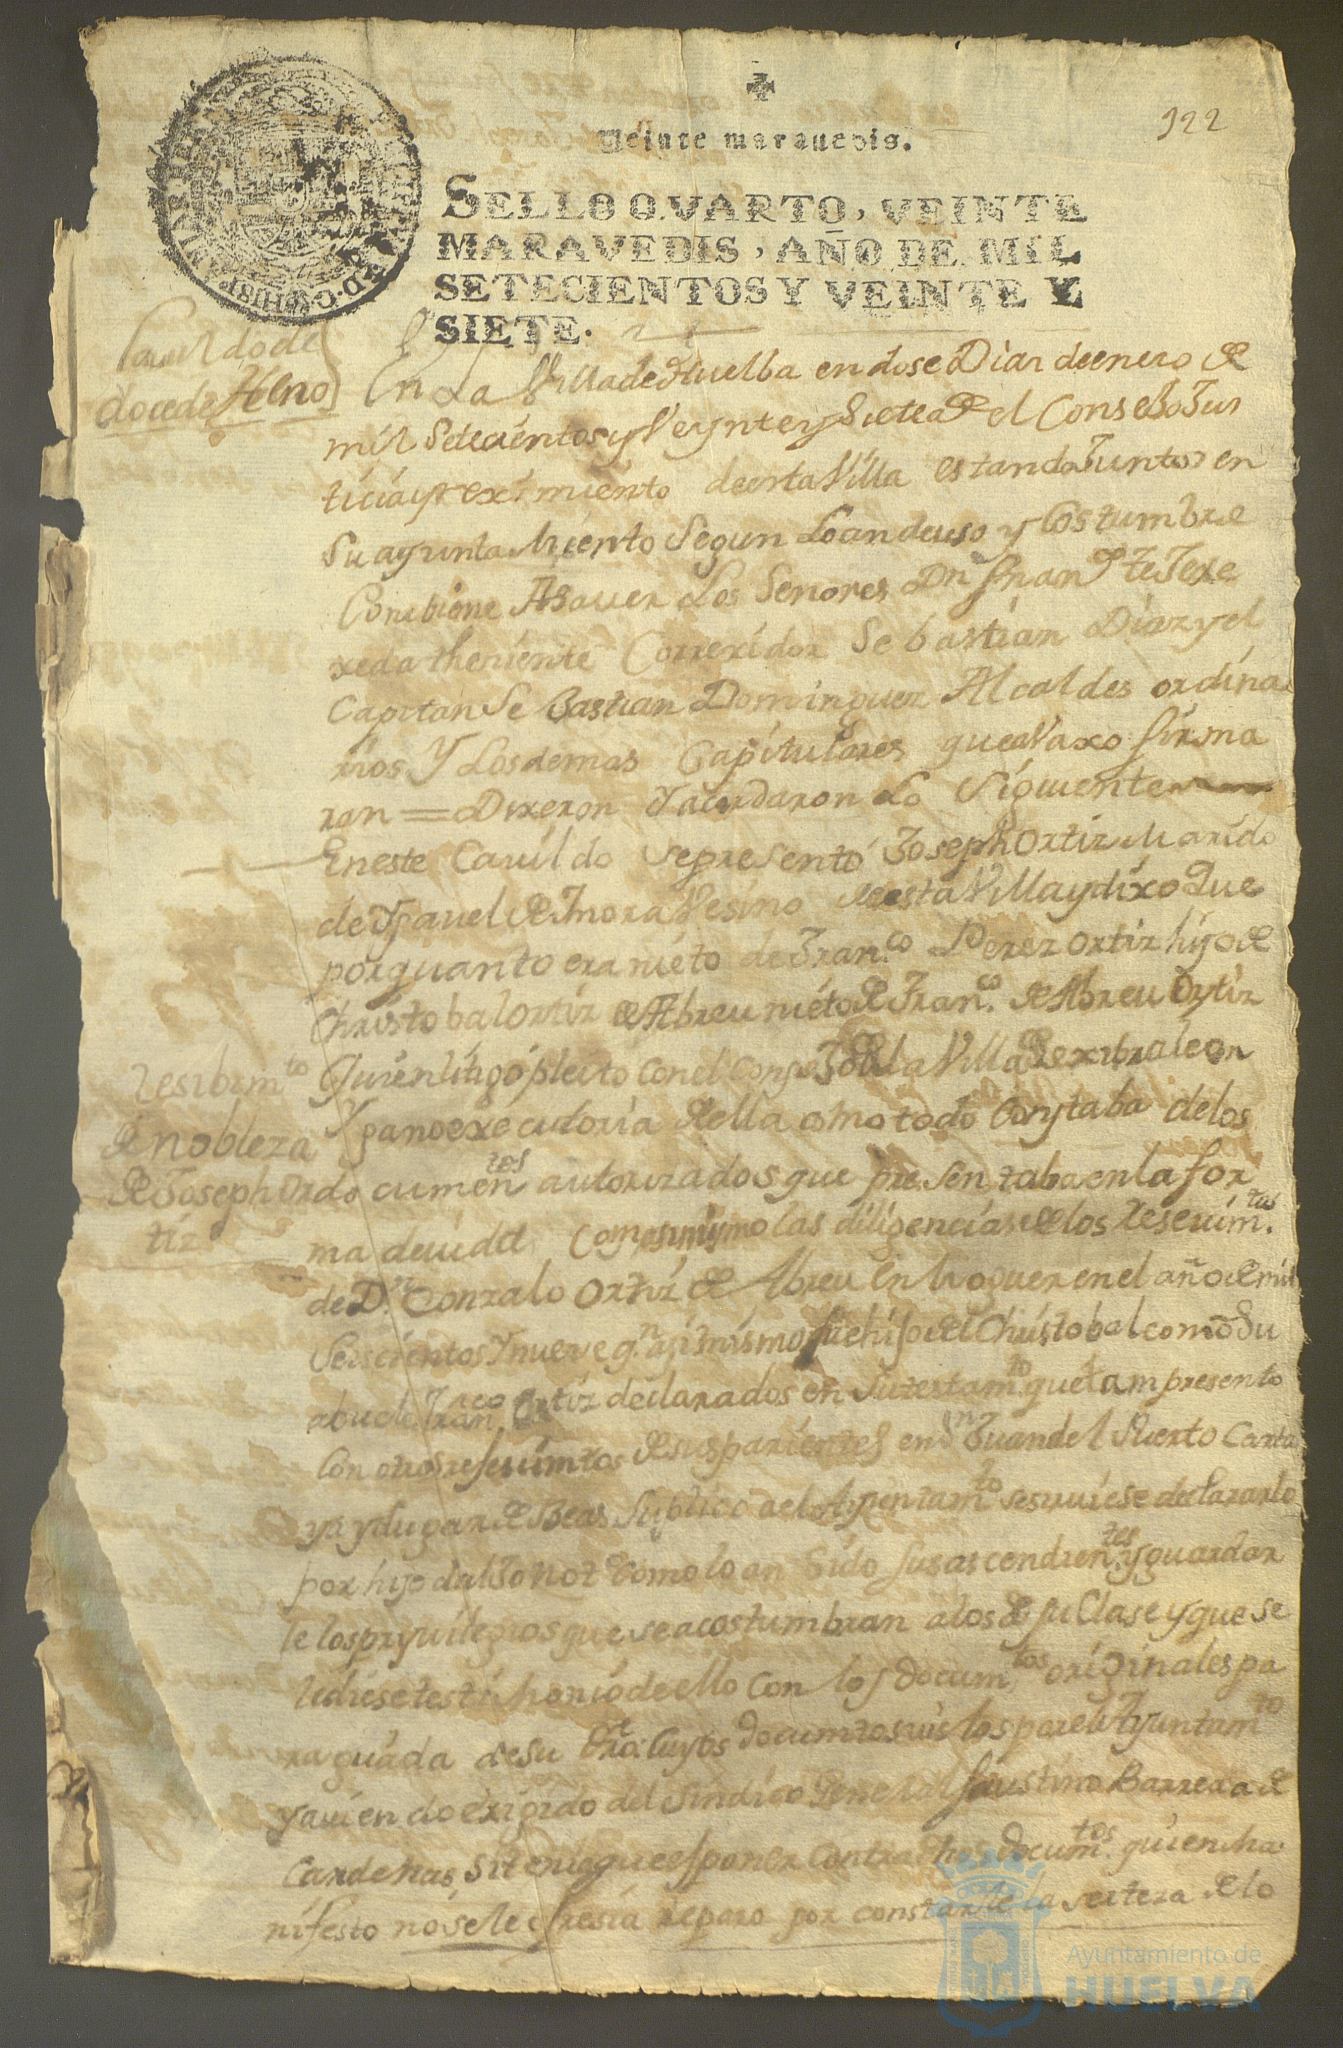 122
Veinte maravedis.
SELLO QVARTO, VEINTE
MARAVEDIS, AÑO DE MIL
SETECIENTOS Y VEINTE Y
SIETE.
HISP
Cauildo de
doce de Heno
En La Villa de Huelba en dose Dias de enero de
mil Setecientos y Veynte y Siete a el Consejo Jus
ticia y reximiento de esta Villa estando Juntos en
Su ayuntamiento Segun Lo an de uso y Costumbre
Conbiene A Sauer Los Señores Dn Fran
xeda theniente Correxidor Sebastian Diaz y el
Capitan Sebastian Dominguez Alcaldes ordina
rios Y Los demas Capitulares que avaxo firma
ran = Dixeron Y acordaron Lo Siguiente
En este Cauildo Se presentó Joseph Ortiz Marido
de Ysauel de Mora Vesino de esta Villa y dixo Que
por quanto era nieto de Fran.co Perez Ortiz hijo de
Christobal Ortiz de Abreu nieto de Fran.co de Abreu Ortiz
Quien litigó pleito con el Consejo de la Villa de Xibraleon
Y gano executoria de ella como todo Constaba de los
documentes autorizados que presentaba en la for
ma deuida Como asimismo las diligencias de los Reseuim.tos
Resibim.to
de nobleza
de Joseph Or
tiz
de D.n Gonzalo Ortiz de Abreu en Moguer en el año de mil
Seiscientos Y nueve q.n asi mismo fue hijo del Christobal como Su
abuelo Fran.co Ortiz declarados en Su testam.to que tam presento
Con otros reseuimtos de sus parientes en Sn Juan del Puerto Carta
ya y Lugar de Beas Suplico a el Ayuntam.to se siruiese declararlo
por hijo dalgo not como lo an Sido Sus ascendientes y guardar
le los pryuilegios que se acostumbran a los de su Clase y que se
le diese testimonio de ello Con los docum.tos originales pa
ra guarda de su Cuyos documtos uistos por el Ayuntam.to
y auiendo exigido del Sindico General Faustino Barrera de
Cardenas, Si tenia que esponer Contra dhos docum.tos quien ma
nifesto no se le ofresia reparo por constarle la serteza de lo
Ayuntamiento de
HUELVA